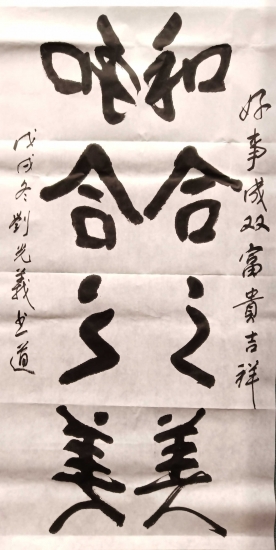 好事成双富貴吉祥
和合之美
和合之美
戊戌冬劉光義书道